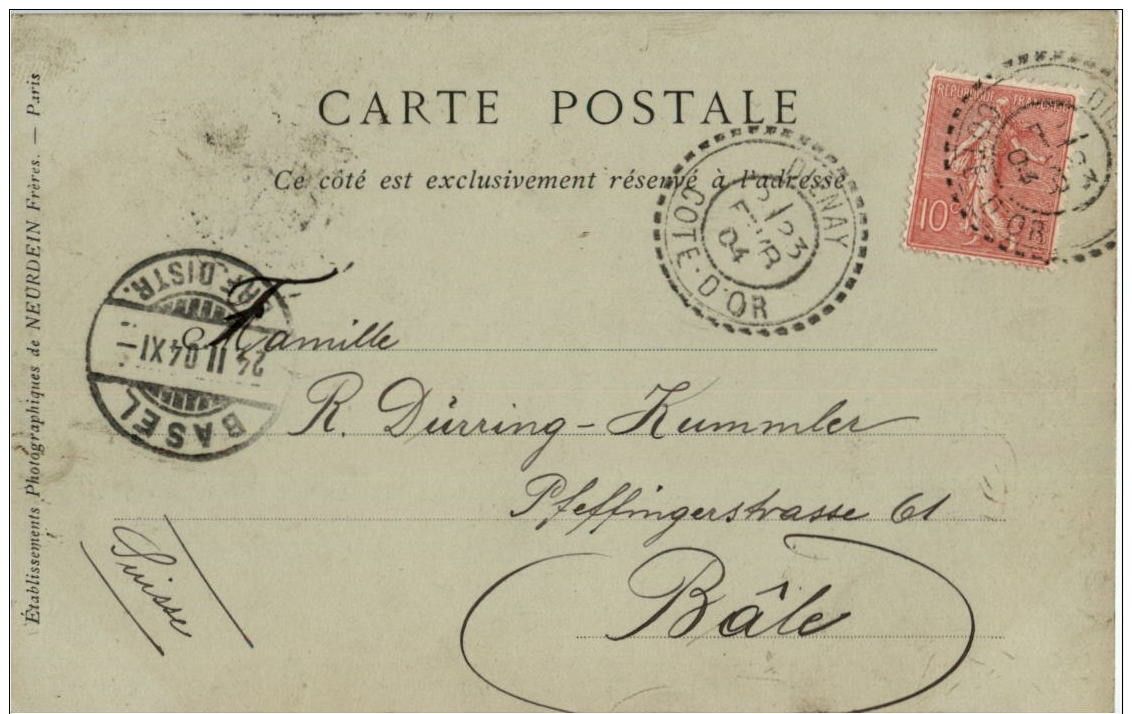 CARTE POSTALE
Ce côté est exclusivement réservé à l'adresse
RÉPUBLIQUE FRANÇAISE
10c
DIENAY
23
FEVR
04
COTE-D'OR
BASEL
24 II 04 XI-
BRF.DISTR.
Famille
R. Dürring-Kummler
Pfeffingerstrasse 61
Bâle
Suisse
Établissements Photographiques de NEURDEIN Frères. — Paris